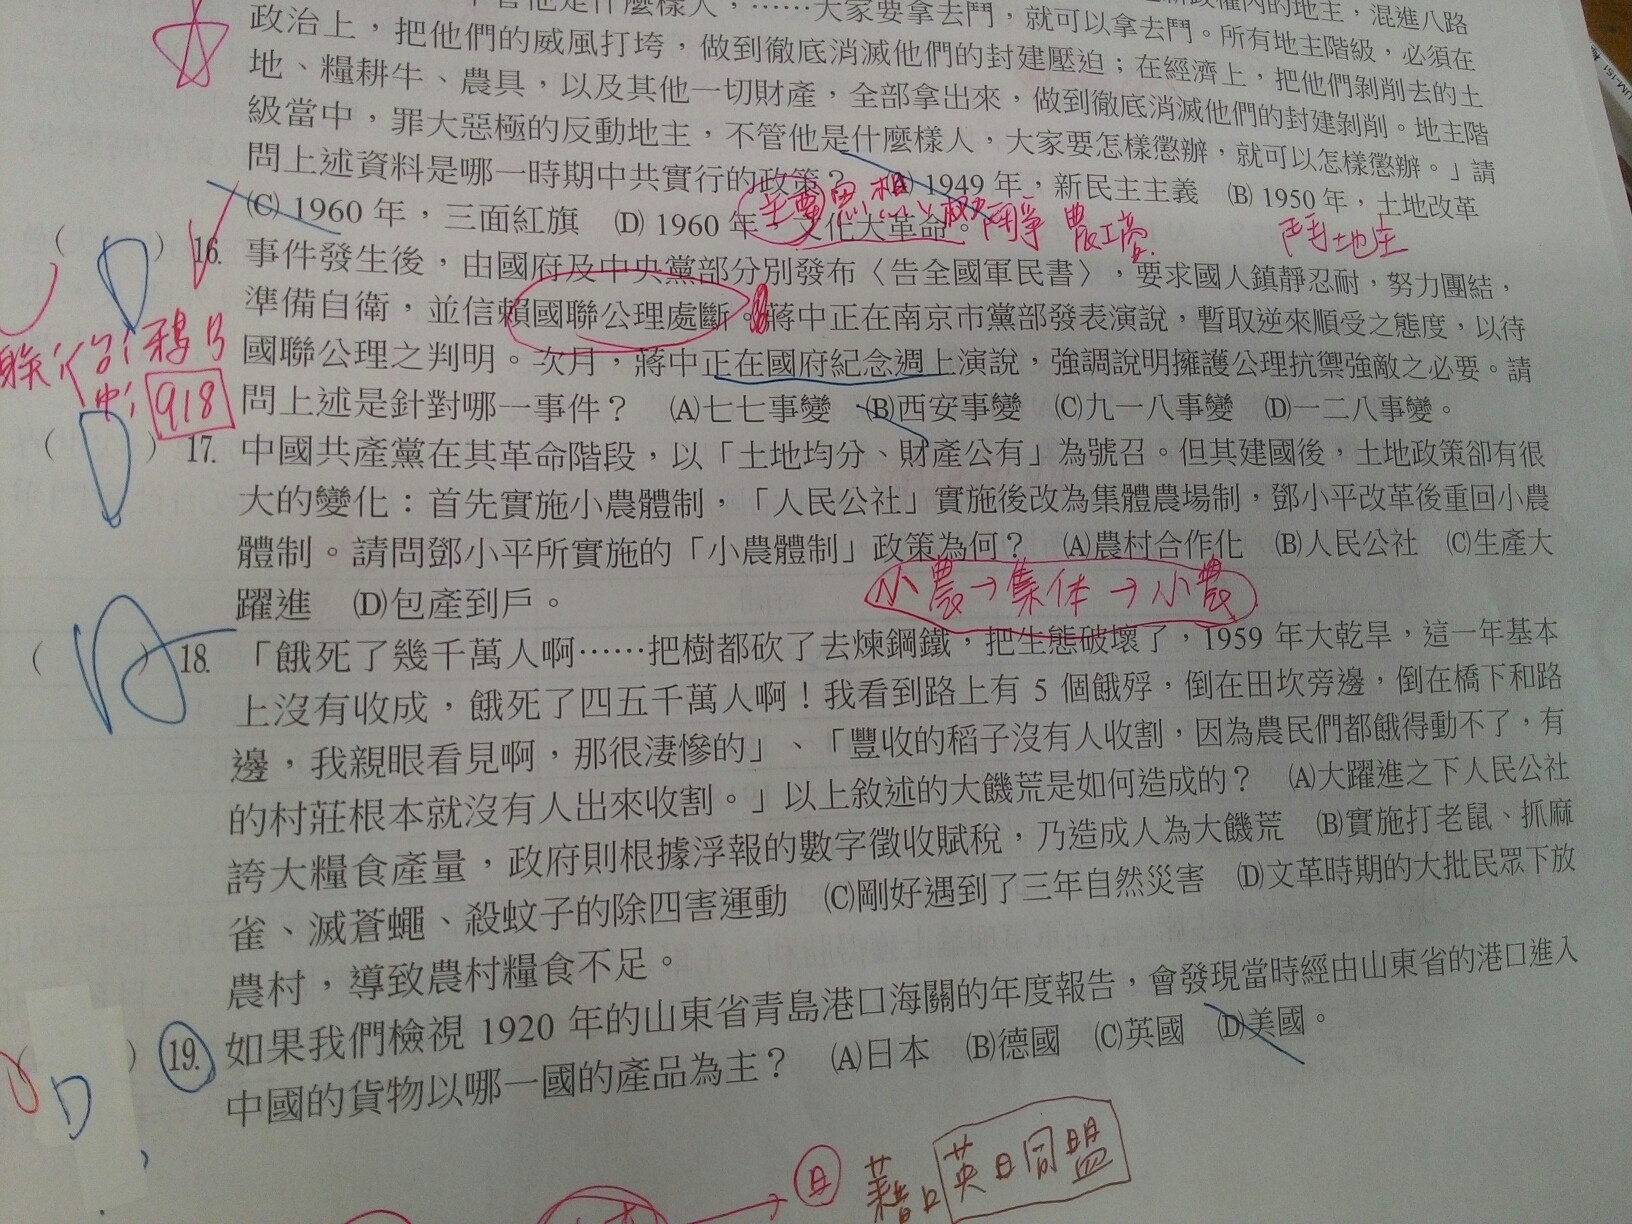 不管他是什麼樣人，……大家要拿去鬥，就可以拿去鬥。所有地主階級，必須在
政權內的地主，混進八路
政治上，把他們的威風打垮，做到徹底消滅他們的封建壓迫；在經濟上，把他們剝削去的土
地、糧耕牛、農具，以及其他一切財產，全部拿出來，做到徹底消滅他們的封建剝削。地主階
級當中，罪大惡極的反動地主，不管他是什麼樣人，大家要怎樣懲辦，就可以怎樣懲辦。」請
問上述資料是哪一時期中共實行的政策？ (A) 1949 年，新民主主義 (B) 1950 年，土地改革
(C) 1960 年，三面紅旗 (D) 1960 年，文化大革命。
主要思想、權鬥爭
鬥地主
( ) 16. 事件發生後，由國府及中央黨部分別發布〈告全國軍民書〉，要求國人鎮靜忍耐，努力團結，
準備自衛，並信賴國聯公理處斷。蔣中正在南京市黨部發表演說，暫取逆來順受之態度，以待
國聯公理之判明。次月，蔣中正在國府紀念週上演說，強調說明擁護公理抗禦強敵之必要。請
問上述是針對哪一事件？ (A)七七事變 (B)西安事變 (C)九一八事變 (D)一二八事變。
918
( ) 17. 中國共產黨在其革命階段，以「土地均分、財產公有」為號召。但其建國後，土地政策卻有很
大的變化：首先實施小農體制，「人民公社」實施後改為集體農場制，鄧小平改革後重回小農
體制。請問鄧小平所實施的「小農體制」政策為何？ (A)農村合作化 (B)人民公社 (C)生產大
躍進 (D)包產到戶。
小農→集体→小農
( ) 18. 「餓死了幾千萬人啊……把樹都砍了去煉鋼鐵，把生態破壞了，1959 年大乾旱，這一年基本
上沒有收成，餓死了四五千萬人啊！我看到路上有 5 個餓殍，倒在田坎旁邊，倒在橋下和路
邊，我親眼看見啊，那很淒慘的」、「豐收的稻子沒有人收割，因為農民們都餓得動不了，有
的村莊根本就沒有人出來收割。」以上敘述的大饑荒是如何造成的？ (A)大躍進之下人民公社
誇大糧食產量，政府則根據浮報的數字徵收賦稅，乃造成人為大饑荒 (B)實施打老鼠、抓麻
雀、滅蒼蠅、殺蚊子的除四害運動 (C)剛好遇到了三年自然災害 (D)文革時期的大批民眾下放
農村，導致農村糧食不足。
D
( ) 19. 如果我們檢視 1920 年的山東省青島港口海關的年度報告，會發現當時經由山東省的港口進入
中國的貨物以哪一國的產品為主？ (A)日本 (B)德國 (C)英國 (D)美國。
日
藉口英日同盟